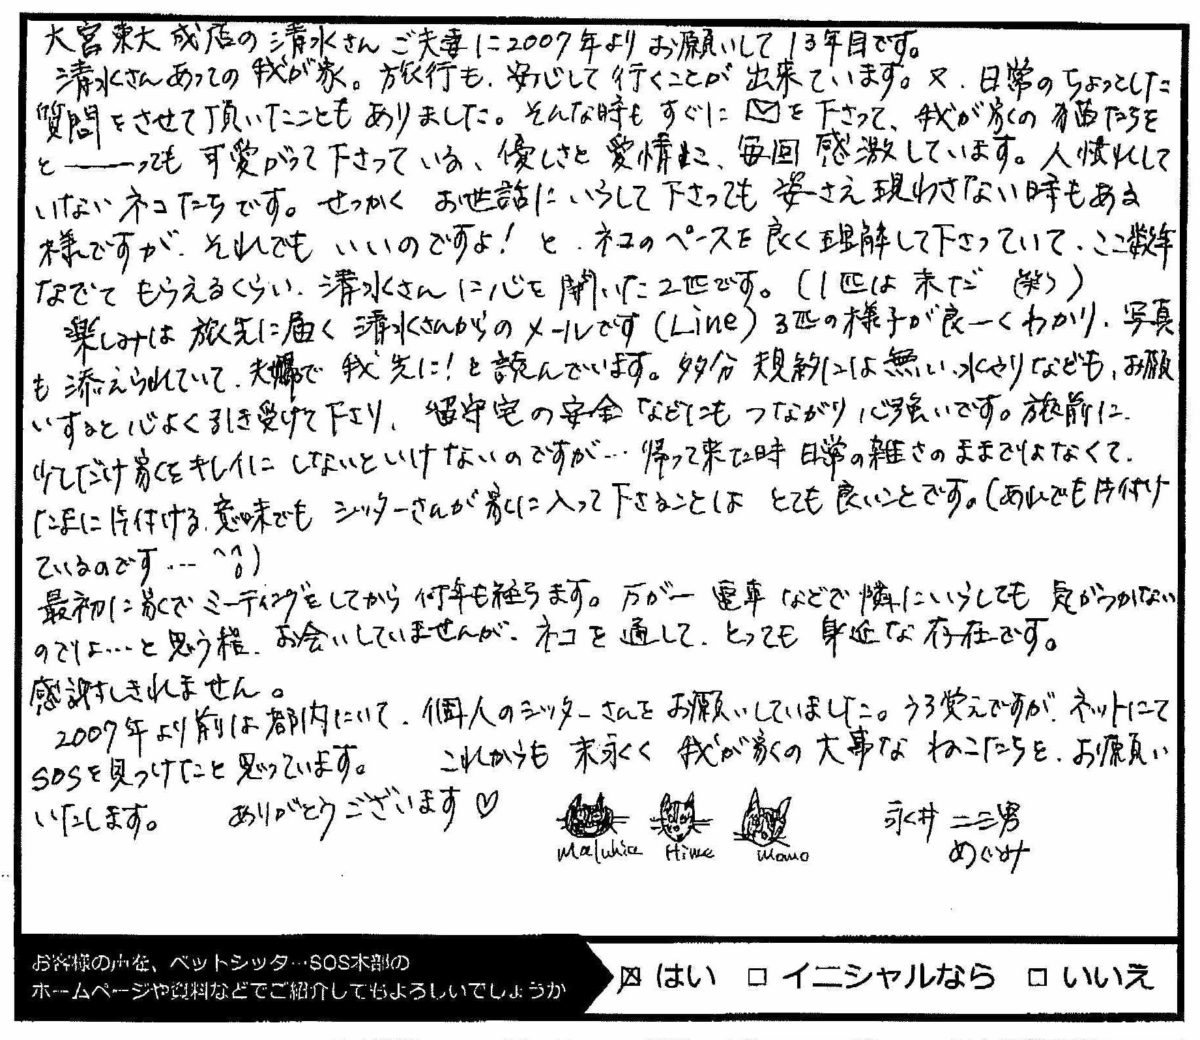 大宮東大成店の清水さんご夫妻に2007年よりお願いして13年目です。
清水さんあっての我が家。旅行も、安心して行くことが出来ています。又、日常のちょっとした
質問をさせて頂いたこともありました。そんな時もすぐに✉を下さって、我が家の猫たちを
と———っても可愛がって下さっている、優しさと愛情に、毎回感激しています。人慣れして
いないネコたちです。せっかくお世話にいらして下さっても姿さえ現わさない時もある
様ですが、それでもいいのですよ!と、ネコのペースを良く理解して下さっていて、ここ数年
なでてもらえるくらい、清水さんに心を開いた2匹です。(1匹は未だ(笑))
楽しみは旅先に届く清水さんからのメールです(Line)3匹の様子が良ーくわかり、写真
も添えられていて、夫婦で我先に!と読んでいます。多分規約には無い、水やりなども、お願
いすると心よく引き受けて下さり、留守宅の安全などにもつながり心強いです。旅前に、
少しだけ家をキレイにしないといけないのですが…帰って来た時日常の雑さのままではなくて、
たまに片付ける、意味でもシッターさんが家に入って下さることはとても良いことです。(あれでも片付け
ているのです…^^;)
最初に家でミーティングをしてから何年も経ちます。万が一電車などで隣にいらしても気がつかない
のでは…と思う程、お会いしていませんが、ネコを通して、とっても身近な存在です。
感謝しきれません。
2007年より前は都内にいて、個人のシッターさんをお願いしていました。うろ覚えですが、ネットにて
SOSを見つけたと思っています。これからも末永く我が家の大事なねこたちを、お願い
いたします。ありがとうございます♡
Maluhia Hime Momo
永井 二三男
めぐみ
お客様の声を、ペットシッターSOS本部の
ホームページや資料などでご紹介してもよろしいでしょうか
☒ はい □ イニシャルなら □ いいえ